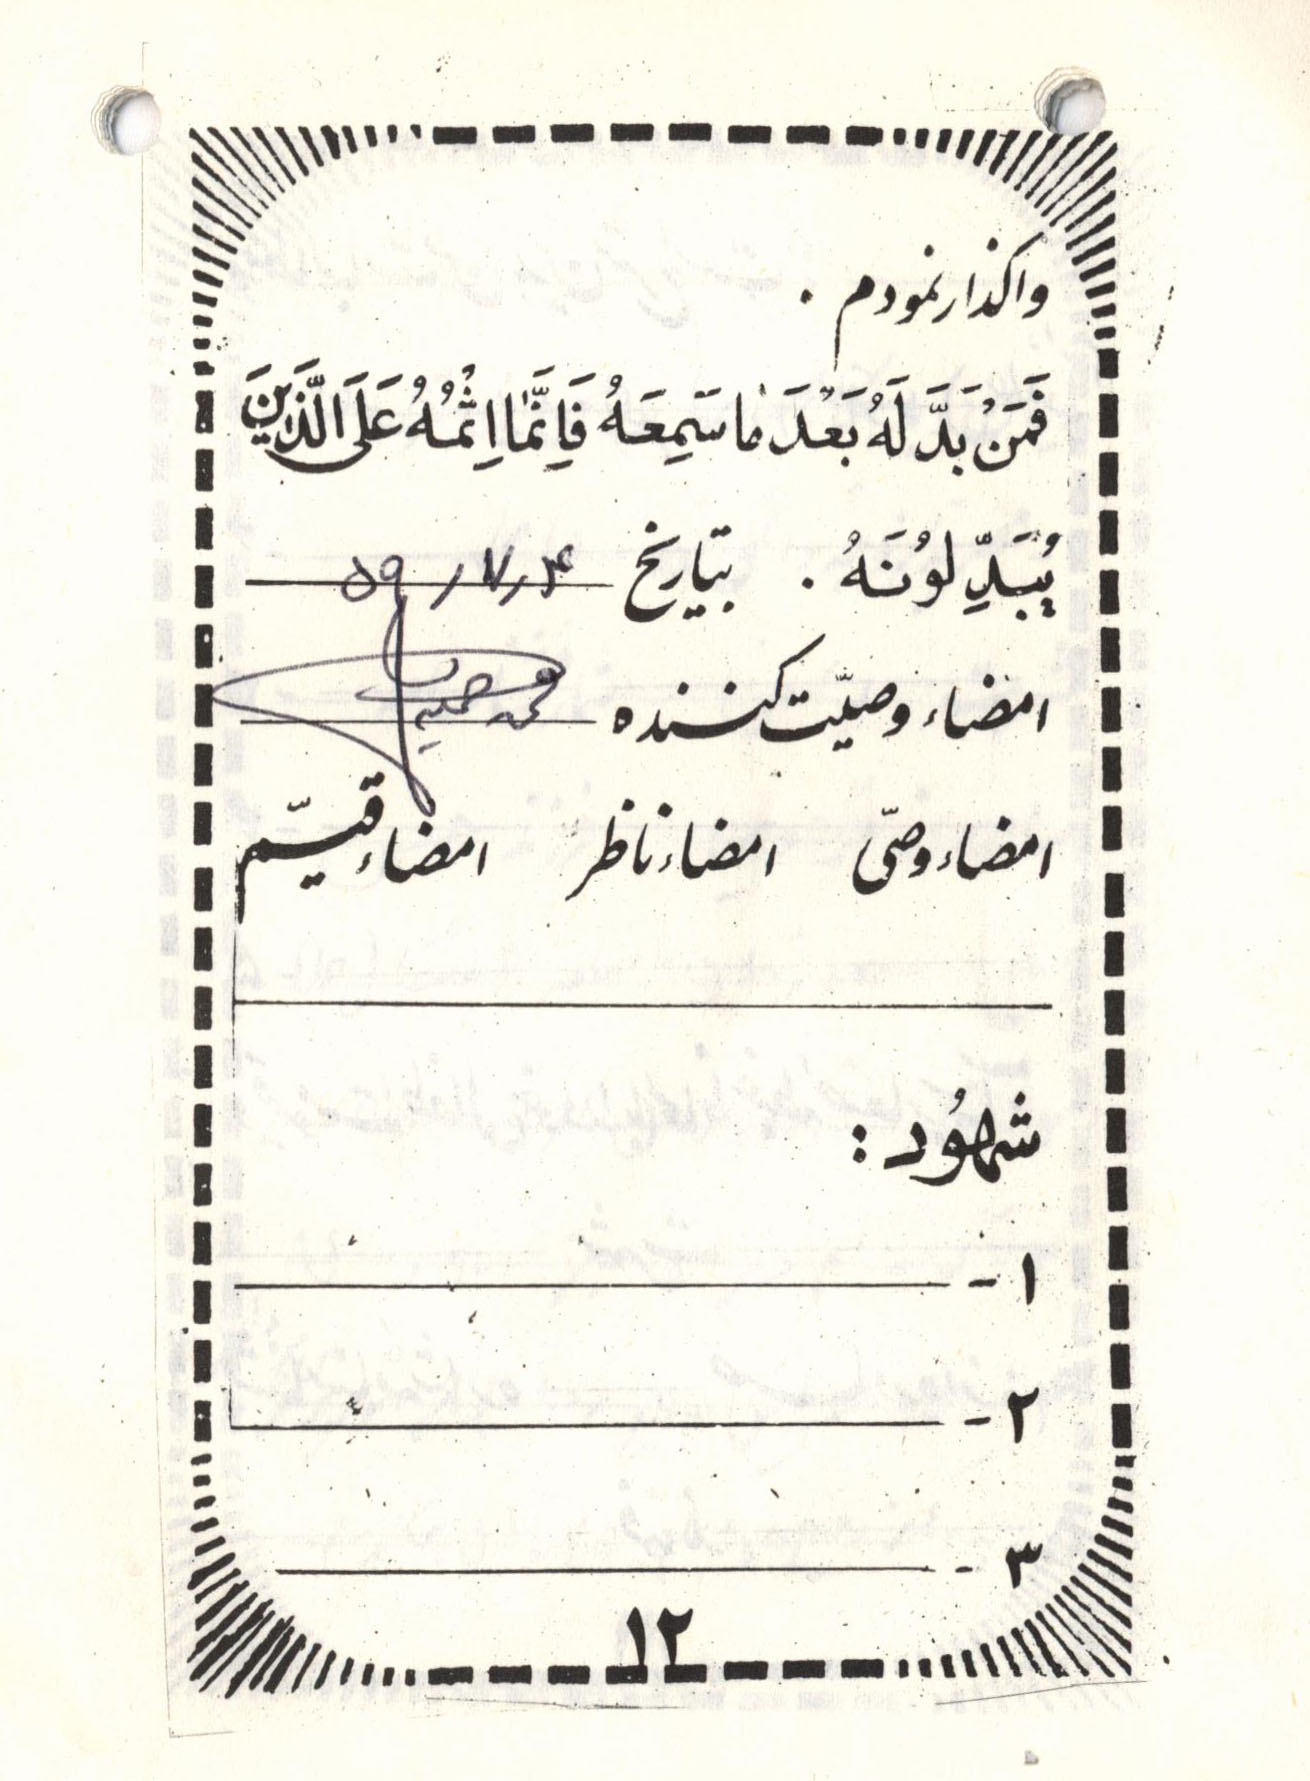 واگذار نمودم .
فَمَنْ بَدَّلَهُ بَعْدَ مَا سَمِعَهُ فَاِنَّمَا اِثْمُهُ عَلَى الَّذَيِنَ
يُبَدِّلوُنَهُ . بتاریخ ۵۹/۷/۴
امضاء وصیّت کننده
امضاء وصّی امضاء ناظر امضاء قیّم
شهُود :
۱ -
۲ -
۳ -
۱۲